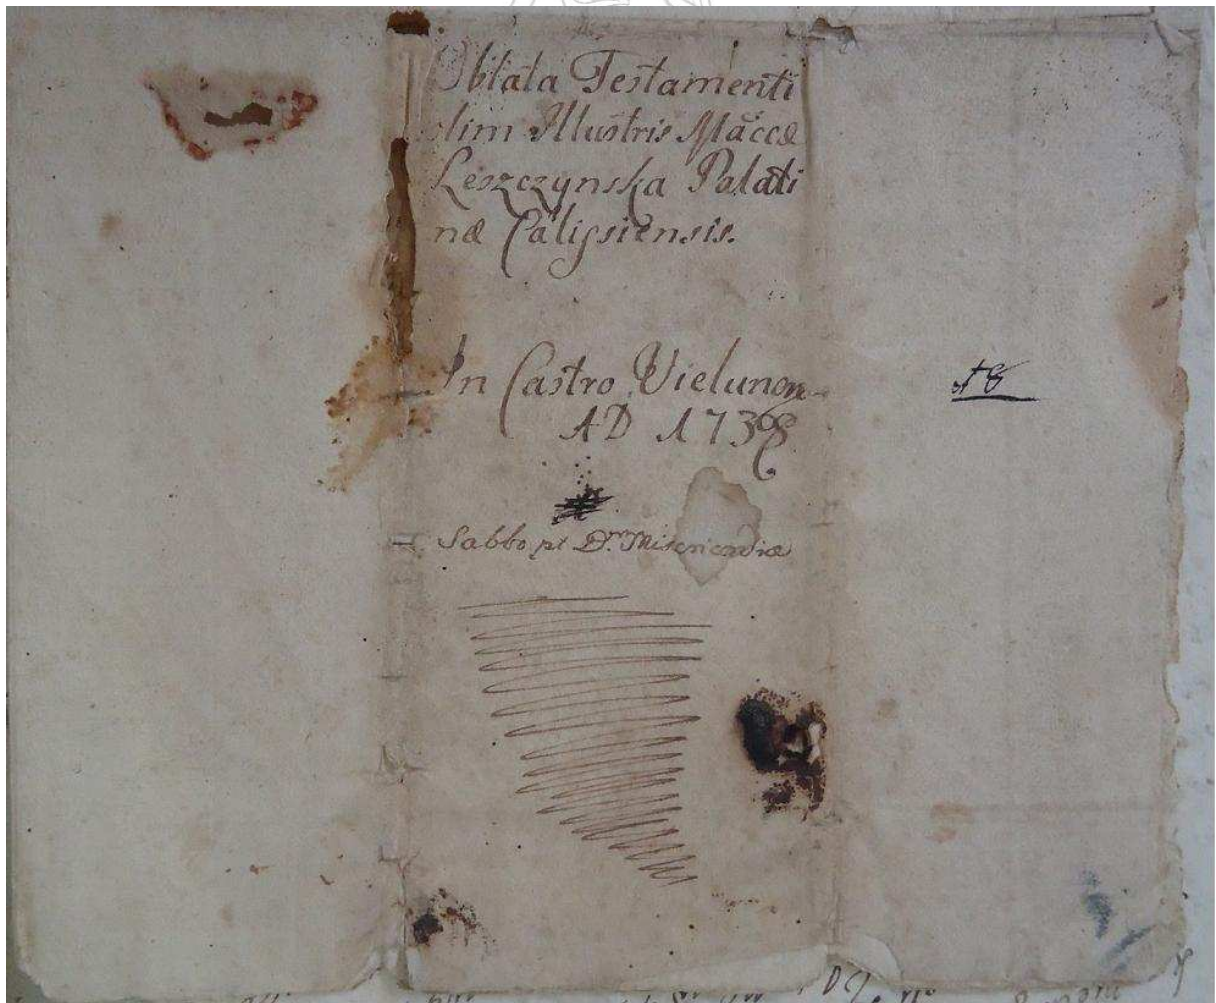 Oblata Testamenti
olim Illustris Măccæ
Leszczynska Palati
næ Calissiensis.
In Castro Vielunen
AD 1738
Sabbo pt Dm Misericordiæ